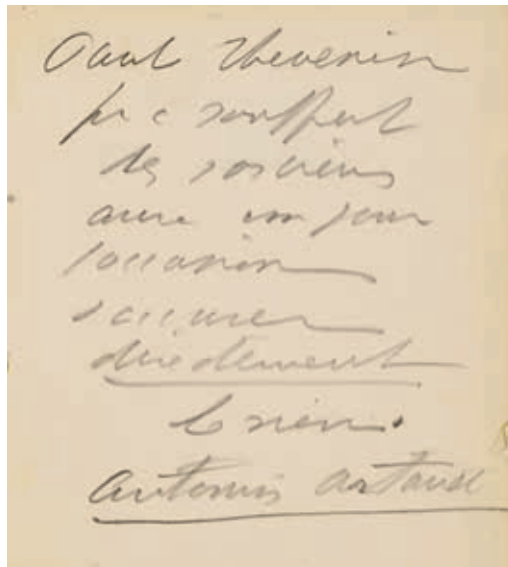 Paul Thevenin
qui a souffert
des sorciers
aura un jour
l'occasion
d'accuser
directement
Antonin Artaud